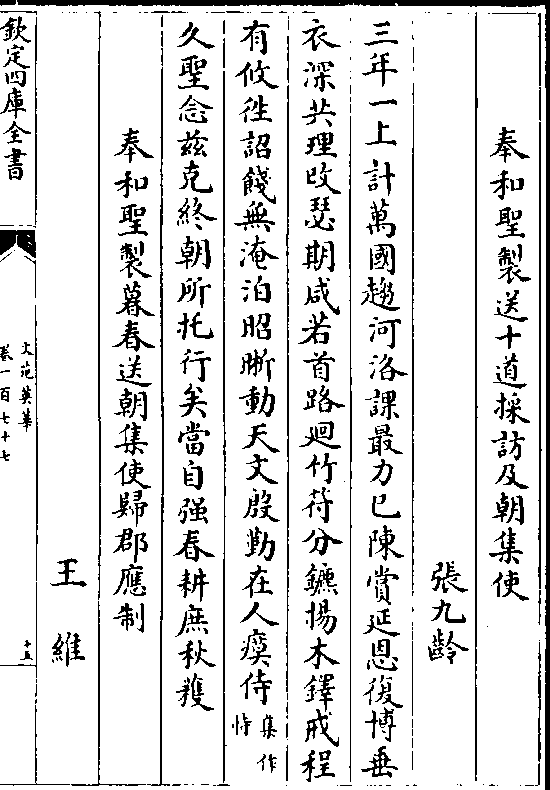 奉和聖製送十道採訪及朝集使
張九齡
三年一上計萬國趨河洛課最力已陳賞延恩復博垂
衣深共理改瑟期咸若首路廻竹符分鑣揚木鐸戒程
有攸徃詔餞無淹泊昭晣動天文殷勤在人瘼侍集作恃
久聖念兹克終朝所托行矣當自强春耕庶秋穫
奉和聖製暮春送朝集使歸郡應制
王維
欽定四庫全書
文苑英華
卷一百七十七
十五